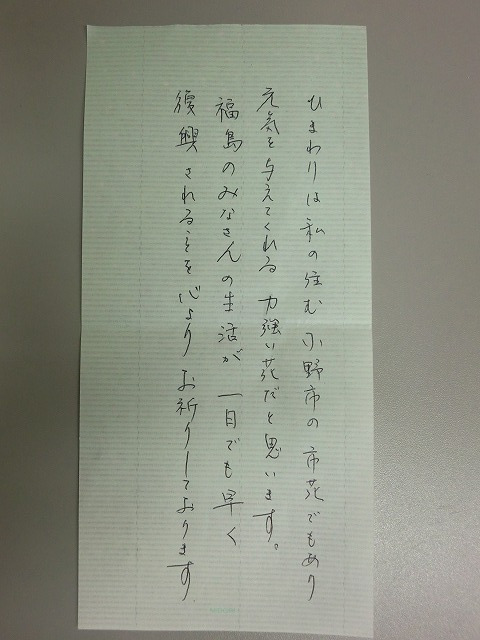 ひまわりは私の住む小野市の市花でもあり
元気を与えてくれる力強い花だと思います。
福島のみなさんの生活が一日でも早く
復興されることを心よりお祈りしております.